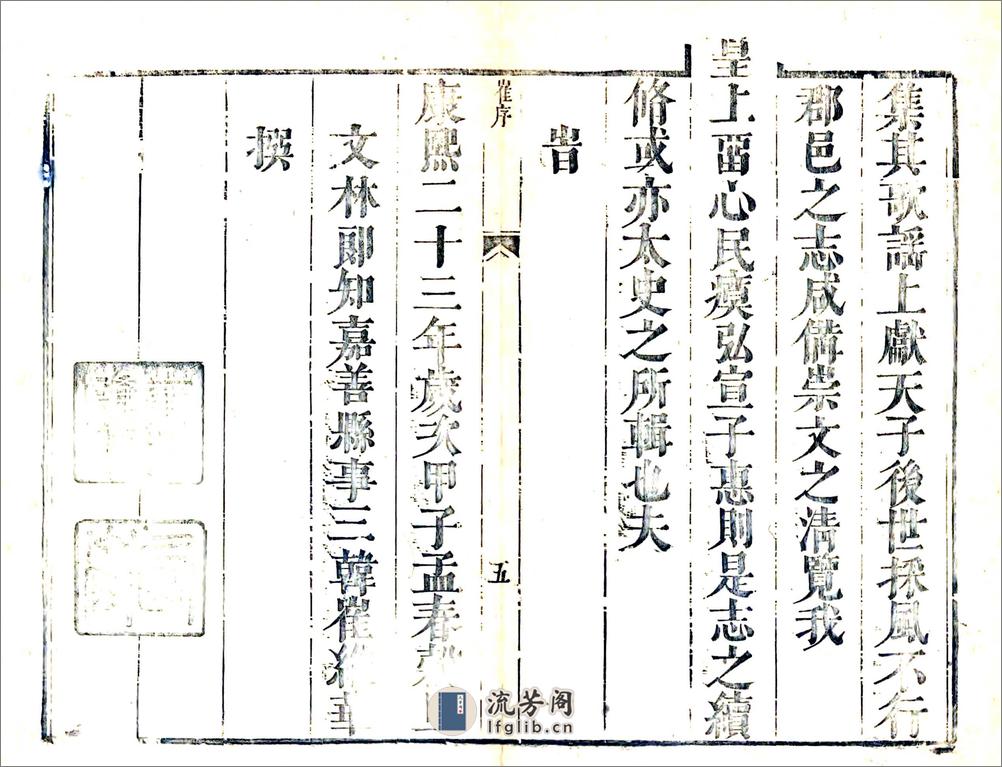 集其歌謡上獻天子後世採風不行
郡邑之志咸備崇文之清覽我
皇上畱心民瘼弘宣子惠則是志之續
脩或亦太史之所輯也夫
旹
崔序
五
康熙二十三年歲次甲子孟春
文林郎知嘉善縣事三韓崔維華
撰
流芳阁
lfglib.cn